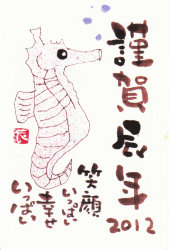 謹賀辰年
2012
笑顔
いっぱい
幸せ
いっぱい
辰